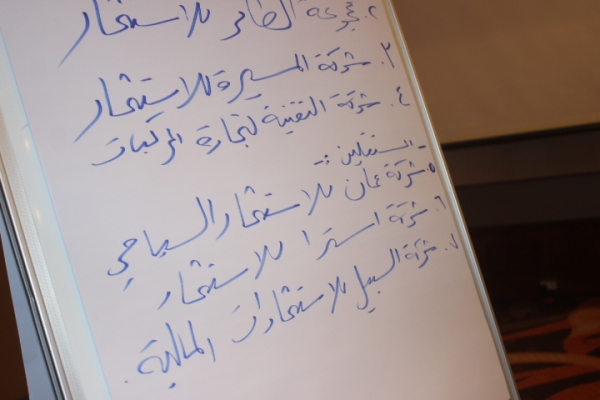 ٢. مجموعة الظافر للاستثمار
٣. شركة المسيرة للاستثمار
٤. شركة التقنية لتجارة المركبات
- المستقلين :-
٥. شركة عمان للاستثمار السياحي
٦. شركة استرا للاستثمار
٧. شركة السبيل للاستثمارات المالية.